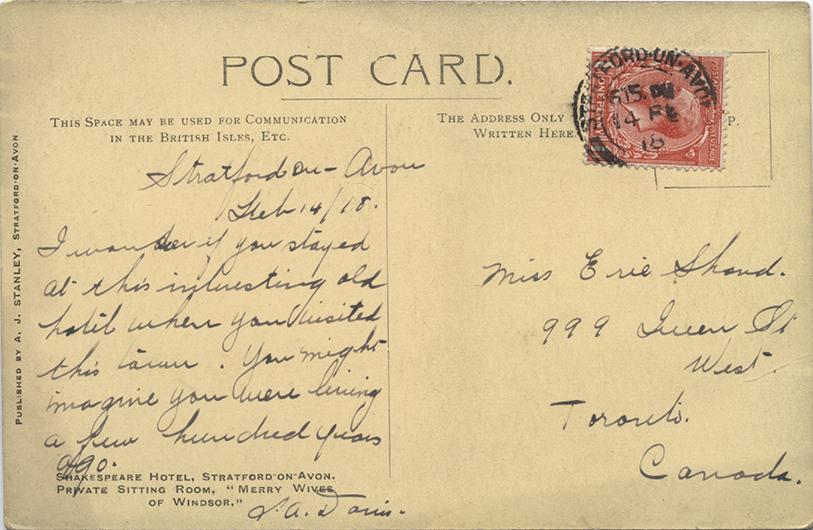 POST CARD.
THIS SPACE MAY BE USED FOR COMMUNICATION
IN THE BRITISH ISLES, ETC.
THE ADDRESS ONLY
WRITTEN HERE.
P.
STRATFORD-ON-AVON
14 FE
18
Stratford on-Avon
Feb 14/18.
I wonder if you stayed
at this interesting old
hotel when you visited
this town. You might
imagine you were living
a few hundred years
ago.
J.A. Davis.
SHAKESPEARE HOTEL, STRATFORD-ON-AVON.
PRIVATE SITTING ROOM, "MERRY WIVES
OF WINDSOR,"
Miss Erie Shand.
999 Queen St
West.
Toronto.
Canada.
PUBLISHED BY A. J. STANLEY, STRATFORD-ON-AVON